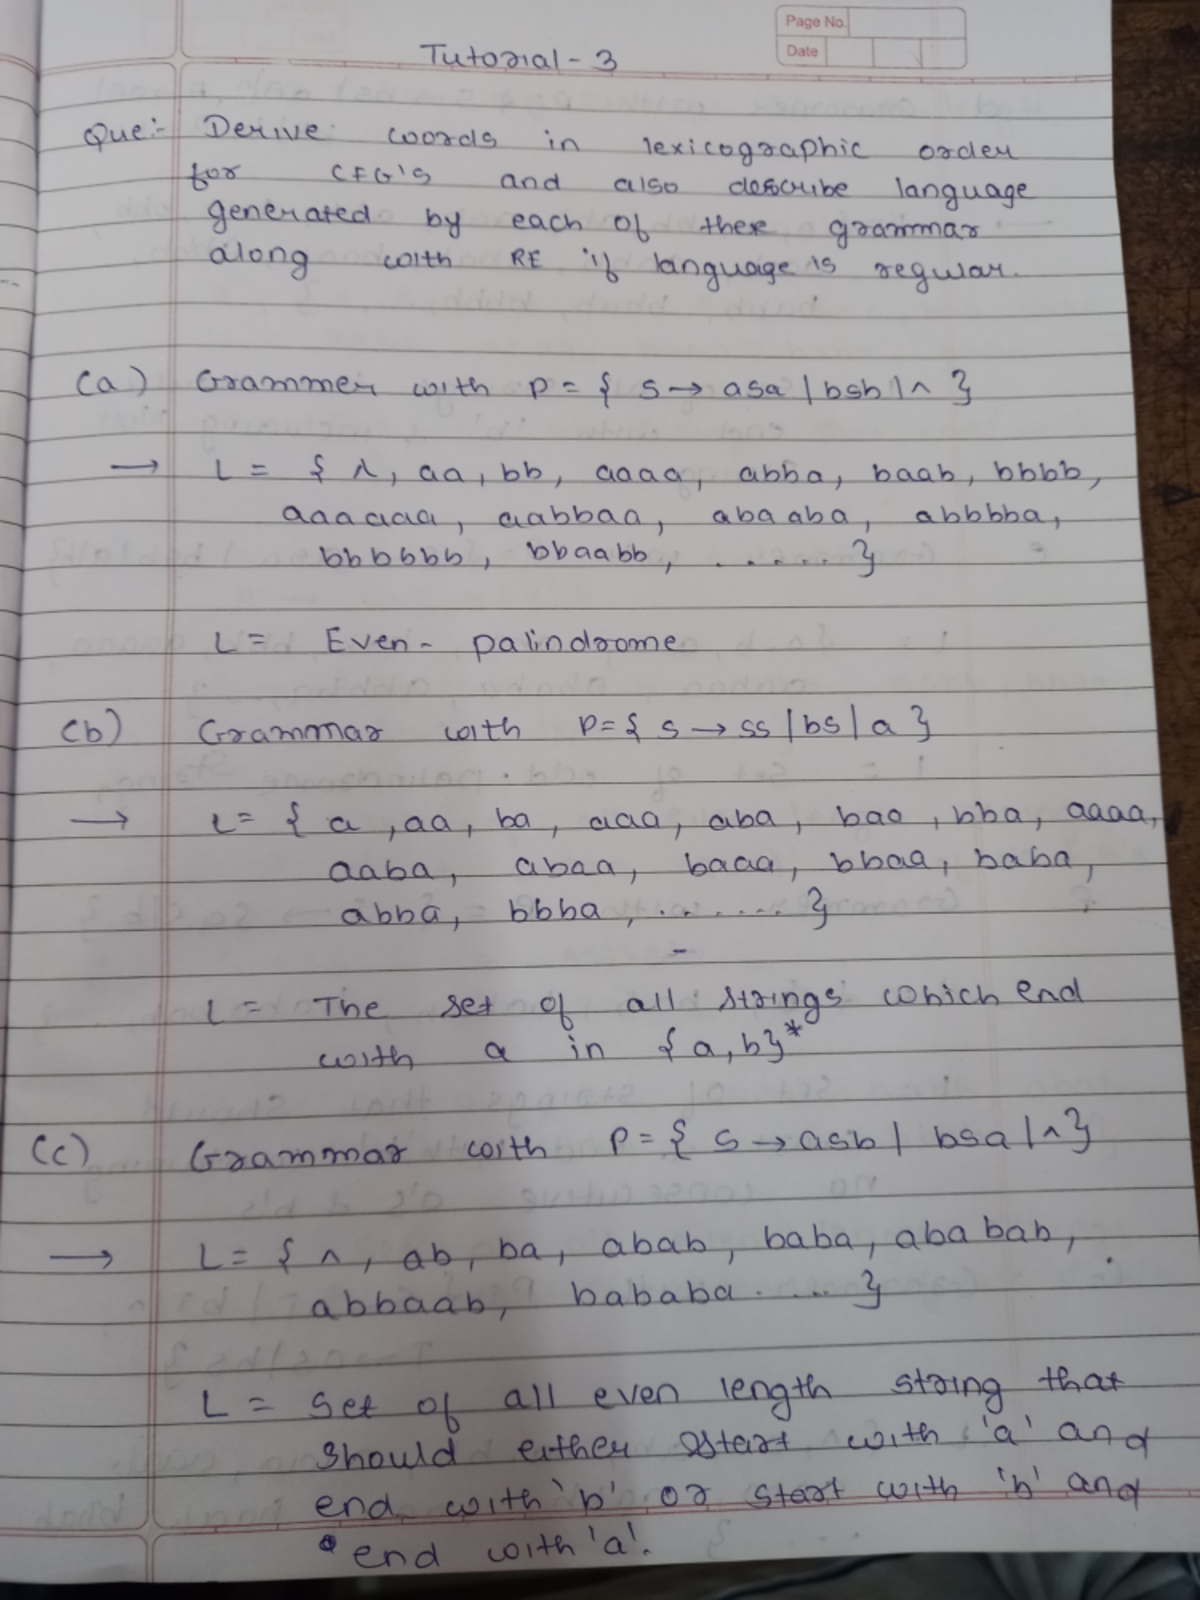 Page No.
Date
Tutorial - 3
Que:- Derive words in lexicographic order
for CFG's and also describe language
generated by each of these grammar
along with RE if language is regular.
(a) Grammer with P = { S → aSa | bSb | ^ }
→ L = { ^, aa, bb, aaaa, abba, baab, bbbb,
aaaaaa, aabbaa, abaaba, abbbba,
bbbbbb, bbaabb, ...... }
L = Even - palindrome
(b) Grammar with P = { S → SS | bS | a }
→ L = { a, aa, ba, aaa, aba, baa, bba, aaaa,
aaba, abaa, baaa, bbaa, baba,
abba, bbba, ....... }
L = The set of all strings which end
with a in {a,b}*
(c) Grammar with P = { S → aSb | bSa | ^ }
→ L = { ^, ab, ba, abab, baba, ababab,
abbaab, bababa ..... }
L = Set of all even length string that
should either start with 'a' and
end with 'b' or start with 'b' and
end with 'a'.